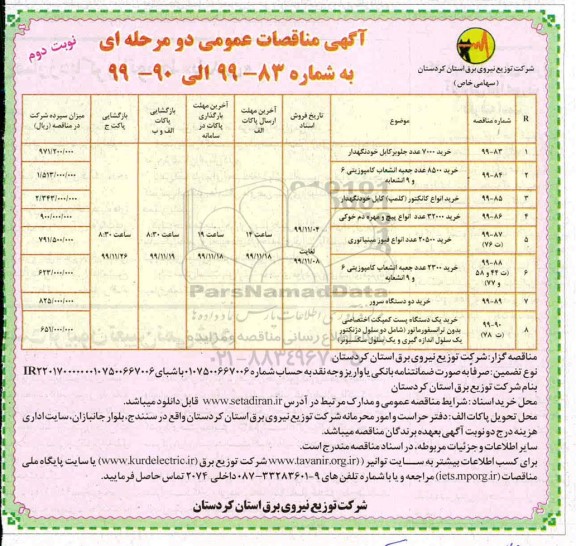 آگهی مناقصات عمومی دو مرحله ای
به شماره ۸۳-۹۹ الی ۹۰-۹۹
نوبت دوم
شرکت توزیع نیروی برق استان کردستان
(سهامی خاص)
R | شماره مناقصه | موضوع | تاریخ فروش اسناد | آخرین مهلت ارسال پاکات الف | آخرین مهلت بارگذاری پاکات در سامانه | بازگشایی پاکات الف و ب | بازگشایی پاکت ج | میزان سپرده شرکت در مناقصه (ریال)
۱ | ۹۹-۸۳ | خرید ۷۰۰۰ عدد جلوبر کابل خودنگهدار | ۹۷۱/۲۰۰/۰۰۰
۲ | ۹۹-۸۴ | خرید ۸۵۰۰ عدد جعبه انشعاب کامپوزیتی ۶ و ۹ انشعابه | ۱/۵۱۳/۰۰۰/۰۰۰
۳ | ۹۹-۸۵ | خرید انواع کانکتور (کلمپ) کابل خودنگهدار | ۲/۳۴۳/۰۰۰/۰۰۰
۴ | ۹۹-۸۶ | خرید ۳۲۰۰۰ عدد انواع پیچ و مهره دم خوکی | ۹۰۰/۰۰۰/۰۰۰
۵ | ۹۹-۸۷ (ت ۷۶) | خرید ۲۰۵۰۰ عدد انواع فیوز مینیاتوری | ۷۹۱/۵۰۰/۰۰۰
۶ | ۹۹-۸۸ (ت ۴۲ و ۵۸ و ۷۷) | خرید ۲۳۰۰ عدد جعبه انشعاب کامپوزیتی ۶ و ۹ انشعابه | ۶۲۳/۰۰۰/۰۰۰
۷ | ۹۹-۸۹ | خرید دو دستگاه سرور | ۸۲۵/۰۰۰/۰۰۰
۸ | ۹۹-۹۰ (ت ۷۸) | خرید یک دستگاه پست کمپکت اختصاصی بدون ترانسفورماتور (شامل دو سلول دژنکتور یک سلول اندازه گیری و یک سلول سکسیونر) | ۶۵۱/۰۰۰/۰۰۰
۹۹/۱۱/۰۴ لغایت ۹۹/۱۱/۰۸ | ساعت ۱۴ ۹۹/۱۱/۱۸ | ساعت ۱۹ ۹۹/۱۱/۱۸ | ساعت ۸:۳۰ ۹۹/۱۱/۱۹ | ساعت ۸:۳۰ ۹۹/۱۱/۲۶
ParsNamadData
۰۲۱-۸۸۳۴۹۶۷
مناقصه گزار: شرکت توزیع نیروی برق استان کردستان
نوع تضمین: صرفا به صورت ضمانتنامه بانکی یا واریز وجه نقد به حساب شماره ۰۱۰۷۵۰۰۶۶۷۰۰۶ با شبای IR۲۲۰۱۷۰۰۰۰۰۰۰۱۰۷۵۰۰۶۶۷۰۰۶
بنام شرکت توزیع نیروی برق استان کردستان
محل خرید اسناد: شرایط مناقصه عمومی و مدارک مرتبط در آدرس www.setadiran.ir قابل دانلود میباشد.
محل تحویل پاکات الف: دفتر حراست و امور محرمانه شرکت توزیع نیروی برق استان کردستان واقع در سنندج، بلوار جانبازان، سایت اداری
هزینه درج دو نوبت آگهی بعهده برندگان مناقصه میباشد.
سایر اطلاعات و جزئیات مربوطه، در اسناد مناقصه مندرج است.
برای کسب اطلاعات بیشتر به سایت توانیر (www.tavanir.org.ir) شرکت توزیع برق (www.kurdelectric.ir) یا سایت پایگاه ملی
مناقصات (iets.mporg.ir) مراجعه و یا با شماره تلفن های ۹-۳۳۲۸۳۶۰۱-۰۸۷ داخلی ۲۰۷۴ تماس حاصل فرمایید.
شرکت توزیع نیروی برق استان کردستان